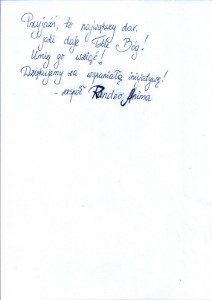 Przyjaźń, to największy dar,
jaki daje Tobie Bóg!
Umiej go wziąć!
Dziękujemy za wspaniałą inicjatywę!
- zespół Rondeo Anima